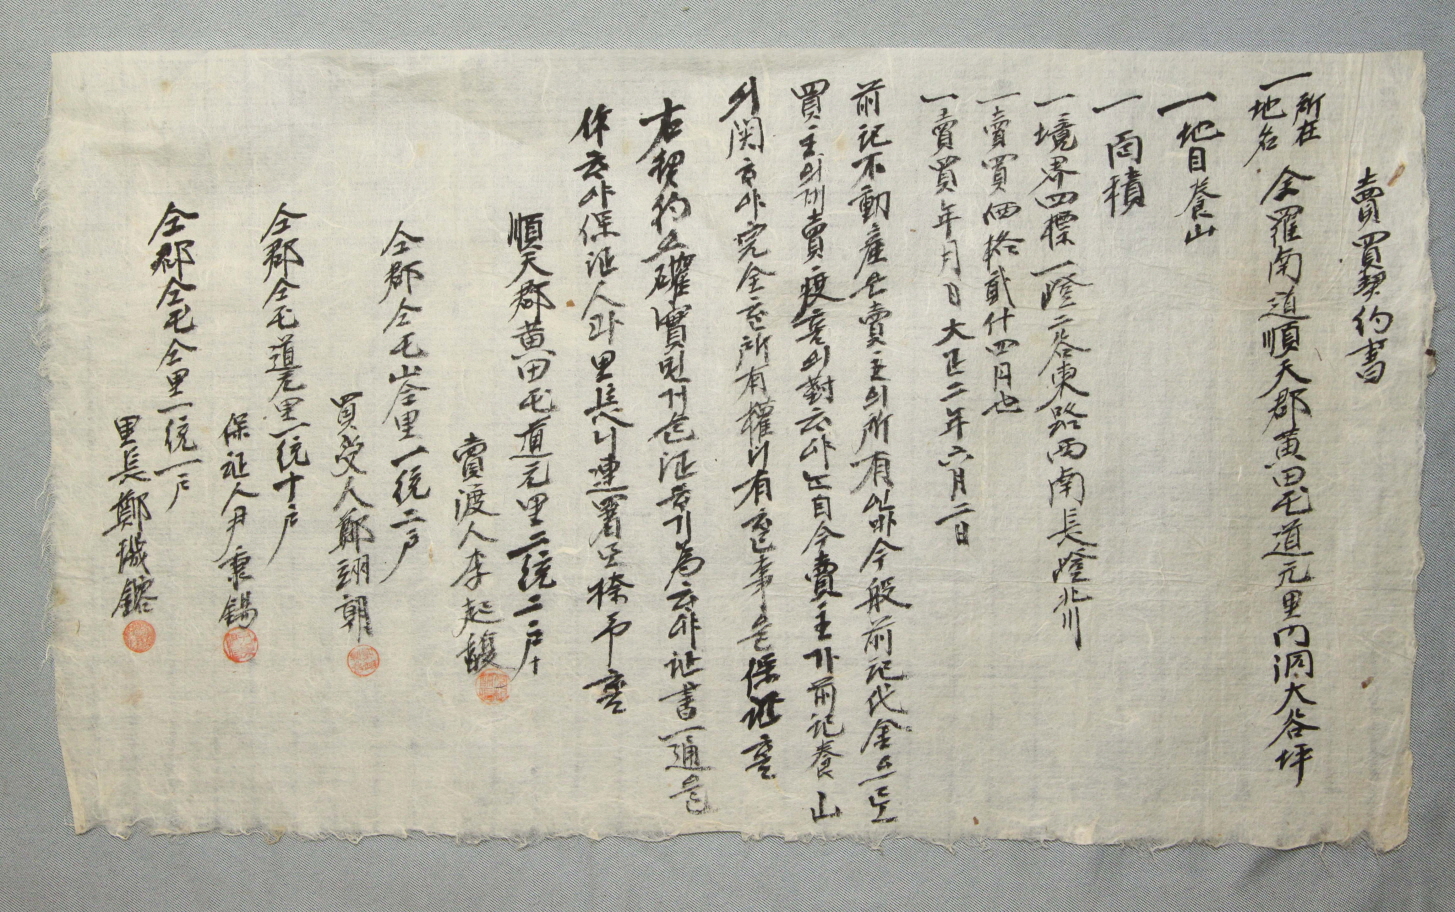 賣買契約書
一 所在 地名 全羅南道順天郡黃田面道元里內洞大谷坪
一 地目養山
一 面積
一 境界四標 一嶝二谷東路西南長嶝北川
一 賣買価拾貳什四円也
一 賣買年月日大正二年六月二日
前記不動産은賣主의所有인바今般前記代金으로
買主의게賣渡홈의對하야는自今賣主가前記養山
의関하야完全한所有權이有한事을保証홈
右契約으確實된거슬証키為하야証書一通을
作하야保証人과里長이連署로捺印홈
順天郡黃田面道元里二統二戶
賣渡人李起馥
仝郡仝面 里一統二戶
買受人鄭翊朝
仝郡仝面道元里一統十戶
保証人尹秉錫
仝郡仝面仝里一統一戶
里長鄭璣鎔